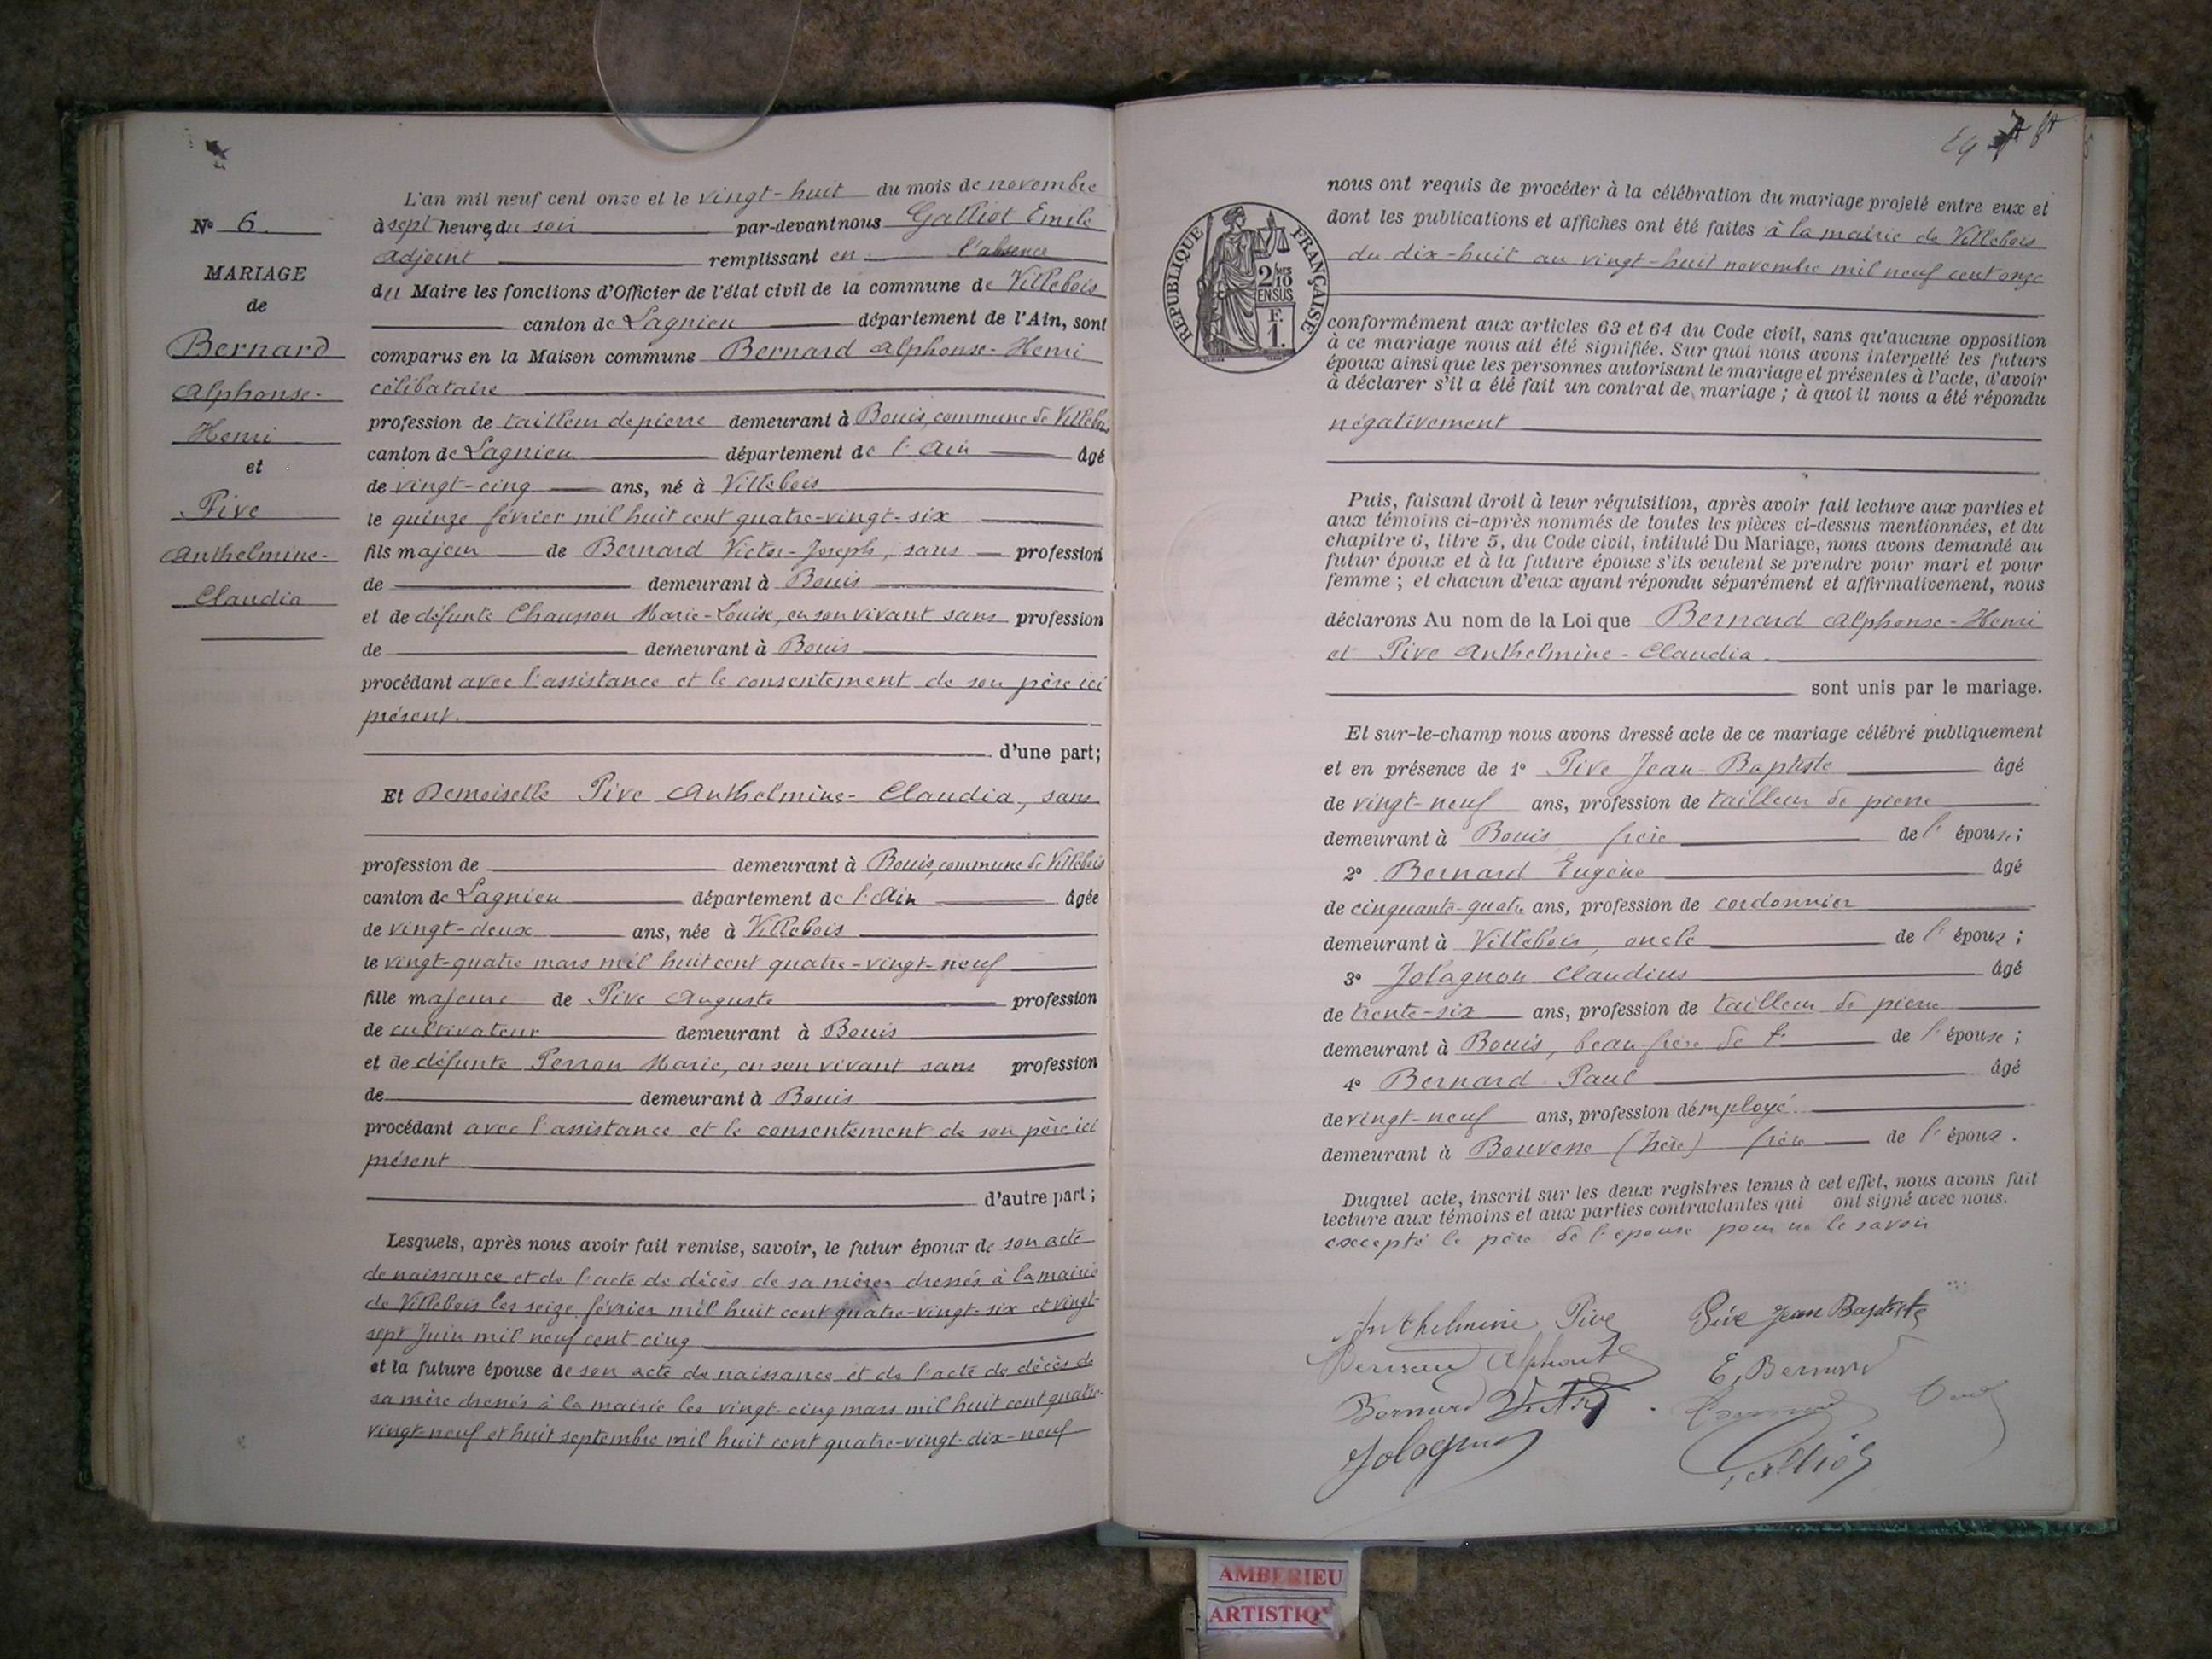 N° 6
MARIAGE
de
Bernard
Alphonse-
Henri
et
Pive
Anthelmine-
Claudia
L'an mil neuf cent onze et le vingt-huit du mois de novembre
à sept heures du soir par-devant nous Galliot Emile
adjoint remplissant en l'absence
du Maire les fonctions d'Officier de l'état civil de la commune de Villebois
canton de Lagnieu département de l'Ain, sont
comparus en la Maison commune Bernard Alphonse-Henri
célibataire
profession de tailleur de pierre demeurant à Bouis, commune de Villebois
canton de Lagnieu département de l'Ain âgé
de vingt-cinq ans, né à Villebois
le quinze février mil huit cent quatre-vingt-six
fils majeur de Bernard Victor-Joseph, sans profession
de demeurant à Bouis
et de défunte Chausson Marie-Louise, en son vivant sans profession
de demeurant à Bouis
procédant avec l'assistance et le consentement de son père ici
présent.
d'une part;
Et Demoiselle Pive Anthelmine-Claudia, sans
profession de demeurant à Bouis, commune de Villebois
canton de Lagnieu département de l'Ain âgée
de vingt-deux ans, née à Villebois
le vingt-quatre mars mil huit cent quatre-vingt-neuf
fille majeure de Pive Auguste profession
de cultivateur demeurant à Bouis
et de défunte Perron Marie, en son vivant sans profession
de demeurant à Bouis
procédant avec l'assistance et le consentement de son père ici
présent
d'autre part;
Lesquels, après nous avoir fait remise, savoir, le futur époux de son acte
de naissance et de l'acte de décès de sa mère dressés à la mairie
de Villebois les seize février mil huit cent quatre-vingt-six et vingt-
sept Juin mil neuf cent cinq
et la future épouse de son acte de naissance et de l'acte de décès de
sa mère dressés à la mairie les vingt-cinq mars mil huit cent quatre-
vingt-neuf et huit septembre mil huit cent quatre-vingt-dix-neuf
nous ont requis de procéder à la célébration du mariage projeté entre eux et
dont les publications et affiches ont été faites à la mairie de Villebois
du dix-huit au vingt-huit novembre mil neuf cent onze
RÉPUBLIQUE FRANÇAISE
2/10
EN SUS
F.
1.
conformément aux articles 63 et 64 du Code civil, sans qu'aucune opposition
à ce mariage nous ait été signifiée. Sur quoi nous avons interpellé les futurs
époux ainsi que les personnes autorisant le mariage et présentes à l'acte, d'avoir
à déclarer s'il a été fait un contrat de mariage; à quoi il nous a été répondu
négativement
Puis, faisant droit à leur réquisition, après avoir fait lecture aux parties et
aux témoins ci-après nommés de toutes les pièces ci-dessus mentionnées, et du
chapitre 6, titre 5, du Code civil, intitulé Du Mariage, nous avons demandé au
futur époux et à la future épouse s'ils veulent se prendre pour mari et pour
femme; et chacun d'eux ayant répondu séparément et affirmativement, nous
déclarons Au nom de la Loi que Bernard Alphonse-Henri
et Pive Anthelmine-Claudia
sont unis par le mariage.
Et sur-le-champ nous avons dressé acte de ce mariage célébré publiquement
et en présence de 1° Pive Jean-Baptiste âgé
de vingt-neuf ans, profession de tailleur de pierre
demeurant à Bouis frère de l'épouse;
2° Bernard Eugène âgé
de cinquante-quatre ans, profession de cordonnier
demeurant à Villebois, oncle de l'époux;
3° Jolagnon Claudius âgé
de trente-six ans, profession de tailleur de pierre
demeurant à Bouis, beau-frère de de l'épouse;
4° Bernard Paul âgé
de vingt-neuf ans, profession d'employé
demeurant à Bouvesse (Isère) frère de l'époux.
Duquel acte, inscrit sur les deux registres tenus à cet effet, nous avons fait
lecture aux témoins et aux parties contractantes qui ont signé avec nous.
excepté le père de l'épouse pour ne le savoir
Anthelmine Pive Pive Jean Baptiste
Bernard Alphonse E, Bernard
Bernard
Jolagnon Galliot
AMBERIEU
ARTISTIQ